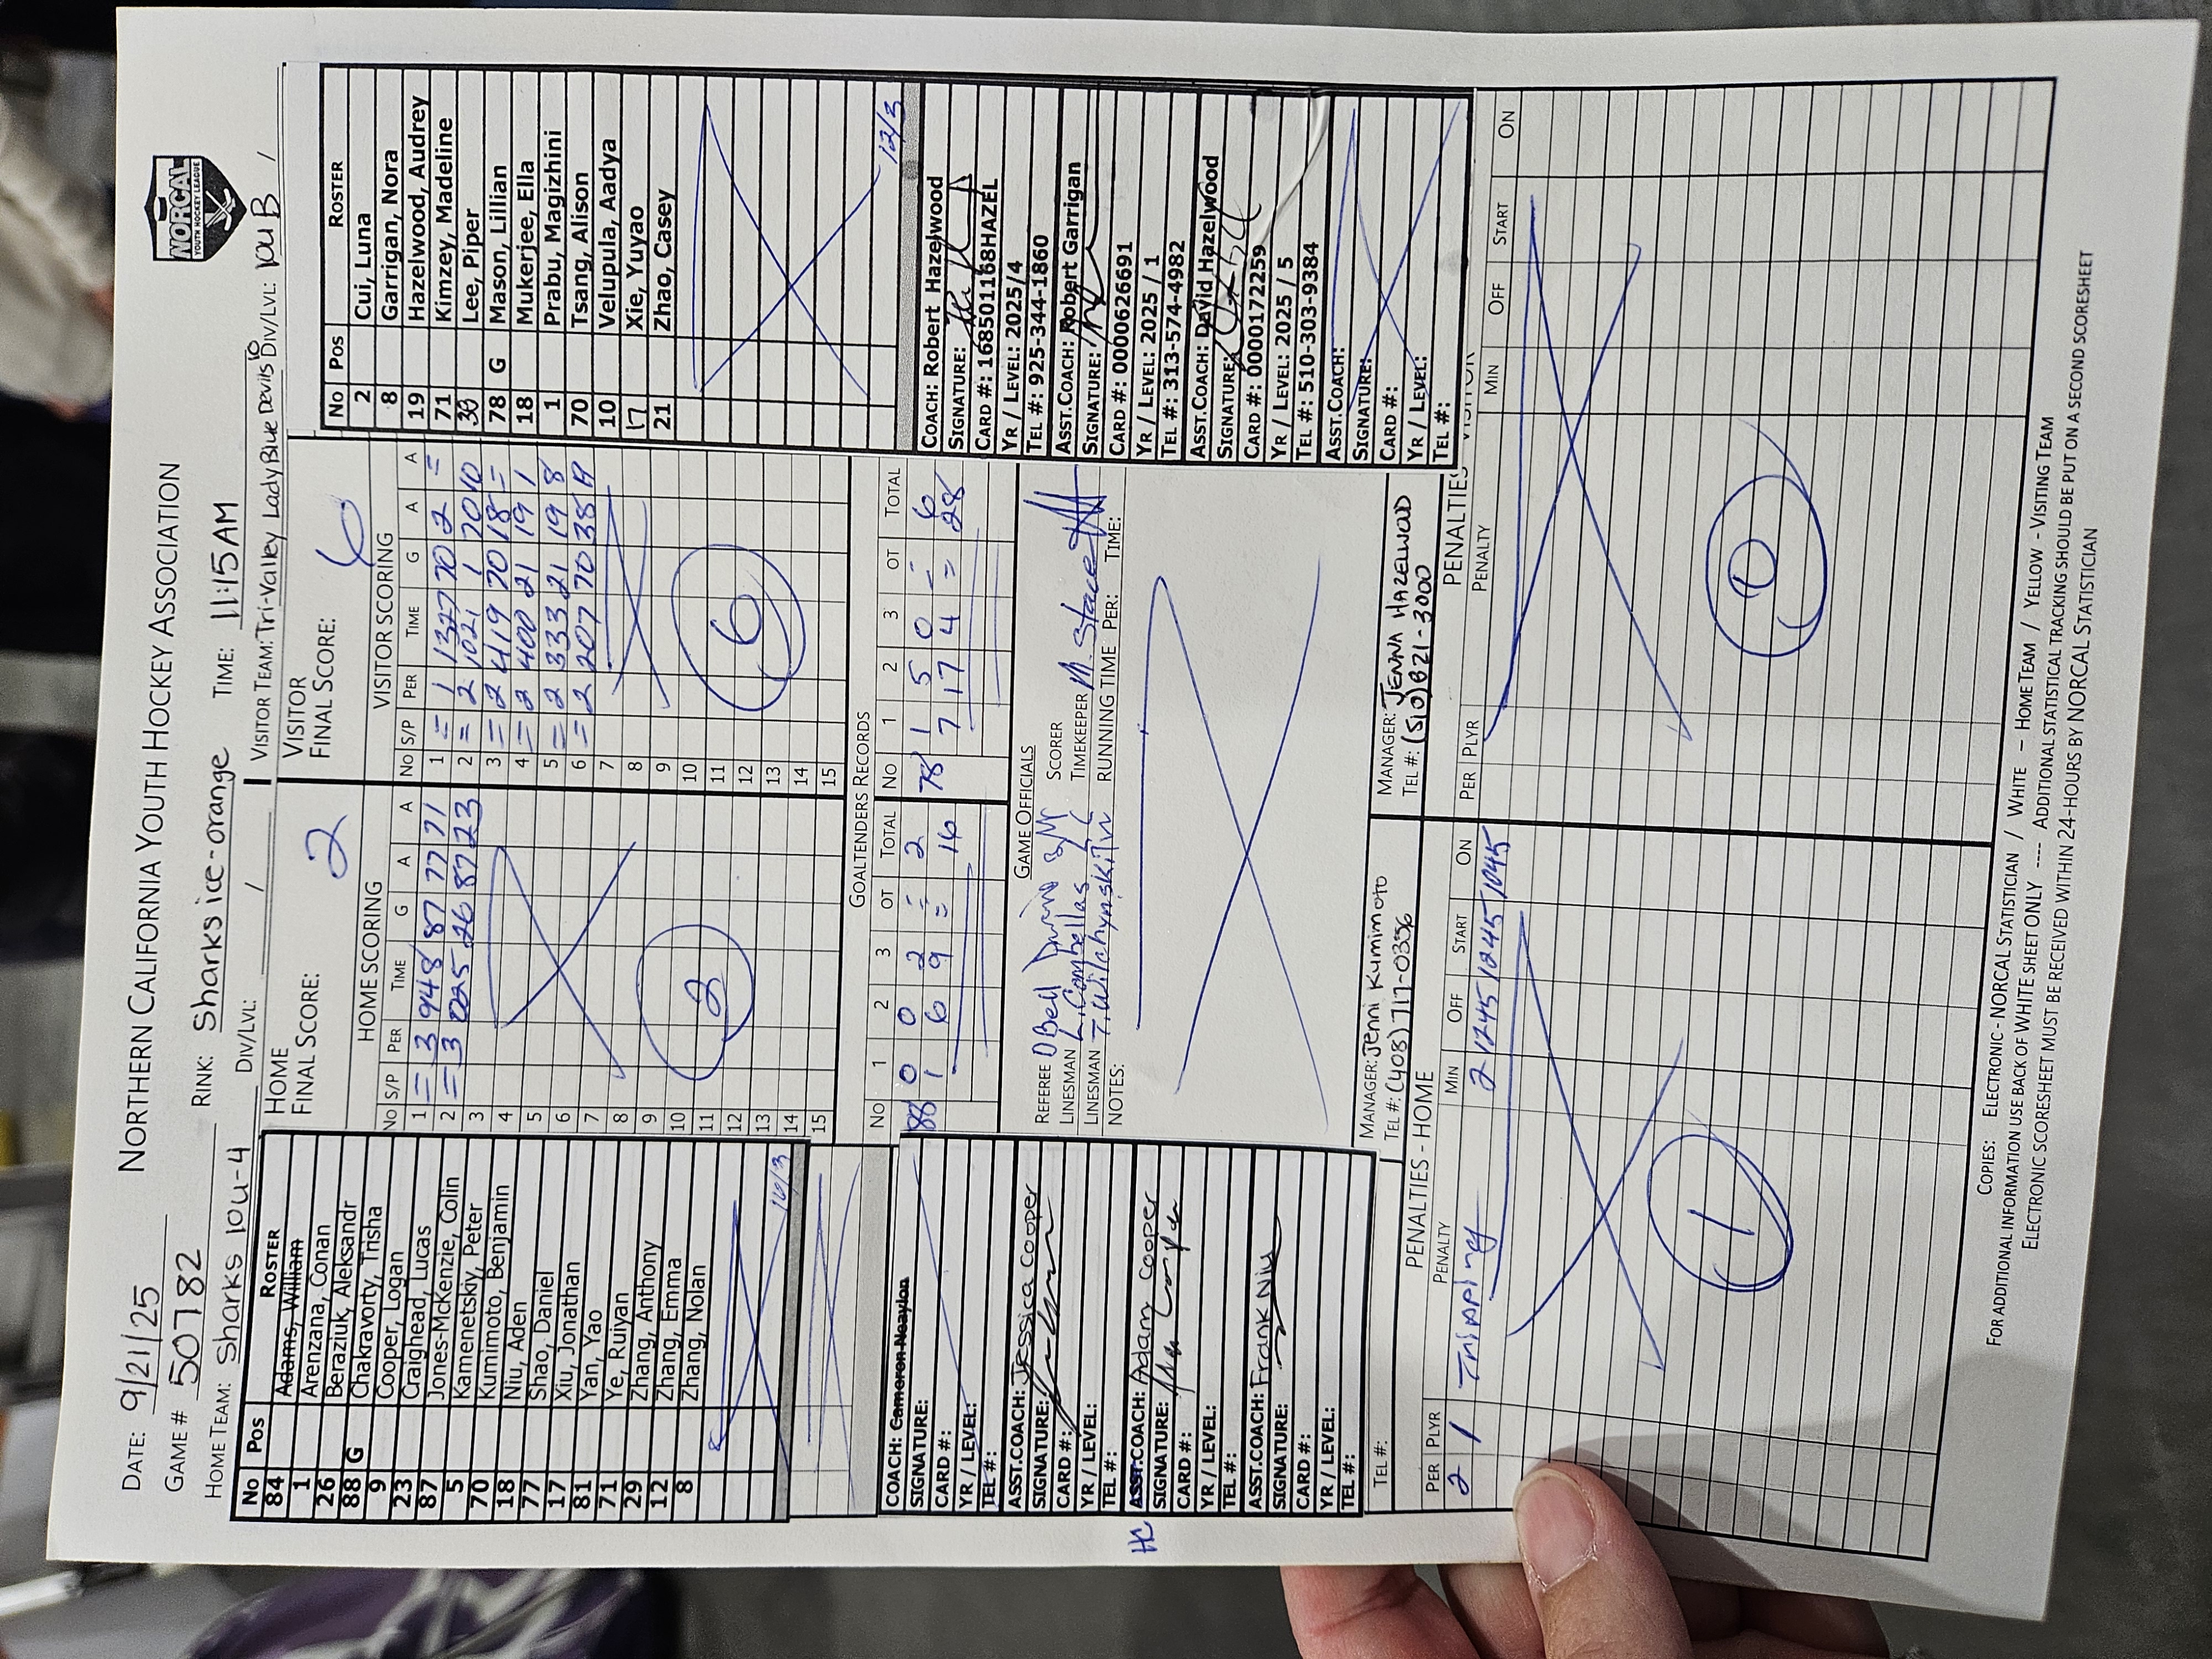 NORTHERN CALIFORNIA YOUTH HOCKEY ASSOCIATION
NORCAL
YOUTH HOCKEY LEAGUE
DATE: 9/21/25
GAME # 50782 RINK: Sharks ice-orange TIME: 11:15AM
HOME TEAM: Sharks 10U-4 DIV/LVL: / VISITOR TEAM: Tri-Valley Lady Blue Devils 10 DIV/LVL: 10U B /
No Pos ROSTER
84 Adams, William
1 Arenzana, Conan
26 Beraziuk, Aleksandr
88 G Chakravorty, Trisha
9 Cooper, Logan
23 Craighead, Lucas
87 Jones-McKenzie, Colin
5 Kamenetskiy, Peter
70 Kumimoto, Benjamin
18 Niu, Aden
77 Shao, Daniel
17 Xiu, Jonathan
81 Yan, Yao
71 Ye, Ruiyan
29 Zhang, Anthony
12 Zhang, Emma
8 Zhang, Nolan
COACH: Cameron Noaylon
SIGNATURE:
CARD #:
YR / LEVEL:
TEL #:
ASST.COACH: Jessica Cooper
SIGNATURE:
CARD #:
YR / LEVEL:
TEL #:
HC ASST.COACH: Adam Cooper
SIGNATURE:
CARD #:
YR / LEVEL:
TEL #:
ASST.COACH: Frank Niu
SIGNATURE:
CARD #:
YR / LEVEL:
TEL #:
TEL #:
HOME
FINAL SCORE: 2
HOME SCORING
No S/P PER TIME G A A
1 = 3 948 87 77 71
2 = 3 025 26 87 23
3
4
5
6
7
8
9
10
11
12
13
14
15
2
VISITOR
FINAL SCORE: 6
VISITOR SCORING
No S/P PER TIME G A A
1 = 1 1327 70 2 =
2 = 2 1021 1 20 10
3 = 2 419 70 18 =
4 = 2 400 21 19 1
5 = 2 333 21 19 8
6 = 2 207 70 38
7
8
9
10
11
12
13
14
15
6
GOALTENDERS RECORDS
No 1 2 3 OT TOTAL No 1 2 3 OT TOTAL
88 0 0 2 = 2 78 1 5 0 = 6
1 6 9 = 16 7 17 4 = 28
GAME OFFICIALS
REFEREE O Bell SCORER
LINESMAN L. Combellas TIMEKEEPER
LINESMAN RUNNING TIME PER: TIME:
NOTES:
MANAGER: Jenni Kumimoto
TEL #: (408) 717-0336
MANAGER: JENNA HAZELWOOD
TEL #: (510) 821-3000
No Pos ROSTER
2 Cui, Luna
8 Garrigan, Nora
19 Hazelwood, Audrey
71 Kimzey, Madeline
Lee, Piper
78 G Mason, Lillian
18 Mukerjee, Ella
1 Prabu, Magizhini
70 Tsang, Alison
10 Velupula, Aadya
17 Xie, Yuyao
21 Zhao, Casey
12/3
COACH: Robert Hazelwood
SIGNATURE:
CARD #: 168501168HAZEL
YR / LEVEL: 2025/4
TEL #: 925-344-1860
ASST.COACH: Robert Garrigan
SIGNATURE:
CARD #: 0000626691
YR / LEVEL: 2025 / 1
TEL #: 313-574-4982
ASST.COACH: David Hazelwood
SIGNATURE:
CARD #: 0000172259
YR / LEVEL: 2025 / 5
TEL #: 510-303-9384
ASST.COACH:
SIGNATURE:
CARD #:
YR / LEVEL:
TEL #:
PENALTIES - HOME
PER PLYR PENALTY MIN OFF START ON
2 1 Tripping 2 1245 1245 1045
1
PENALTIES
PER PLYR PENALTY MIN OFF START ON
0
COPIES: ELECTRONIC - NORCAL STATISTICIAN / WHITE - HOME TEAM / YELLOW - VISITING TEAM
FOR ADDITIONAL INFORMATION USE BACK OF WHITE SHEET ONLY ---- ADDITIONAL STATISTICAL TRACKING SHOULD BE PUT ON A SECOND SCORESHEET
ELECTRONIC SCORESHEET MUST BE RECEIVED WITHIN 24-HOURS BY NORCAL STATISTICIAN